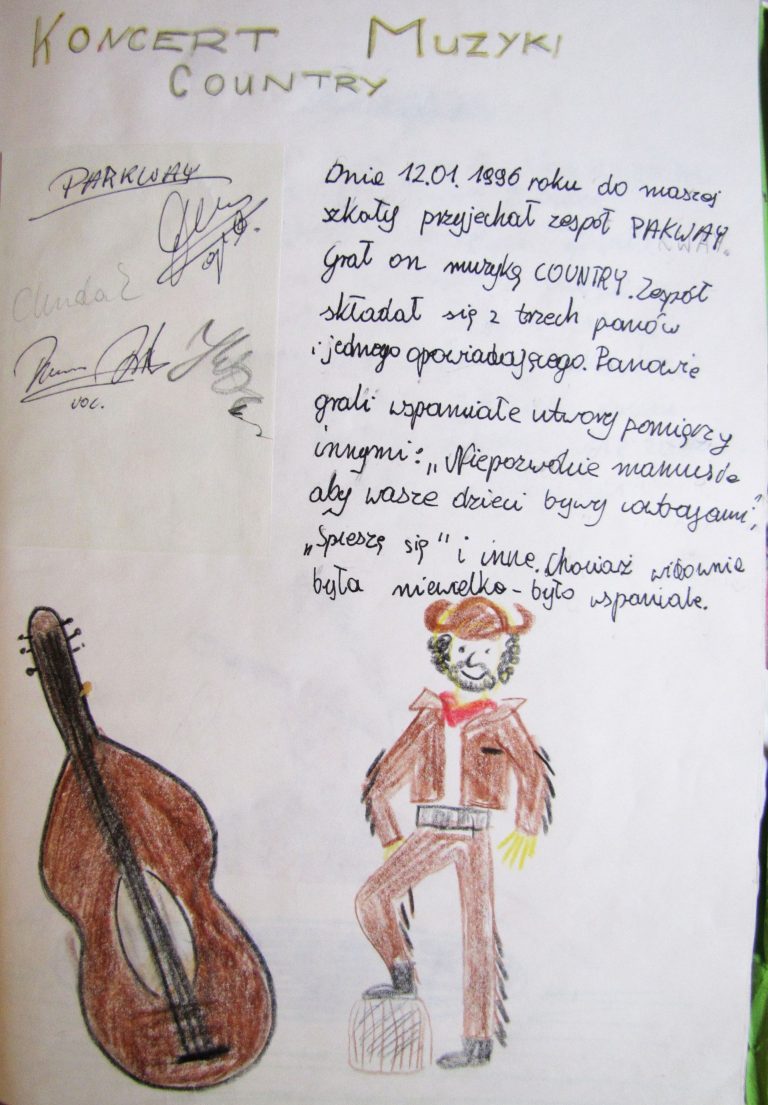 KONCERT MUZYKI
COUNTRY
PARKWAY
voc.
Dnia 12.01.1996 roku do naszej
szkoły przyjechał zespół PAKWAY.
Grał on muzykę COUNTRY. Zespół
składał się z trzech panów
i jednego opowiadającego. Panowie
grali wspaniałe utwory pomiędzy
innymi: „Niepozwólcie mamusie
aby wasze dzieci były cowbojami",
„Spieszę się" i inne. Chociaż widownia
była niewielka - było wspaniale.